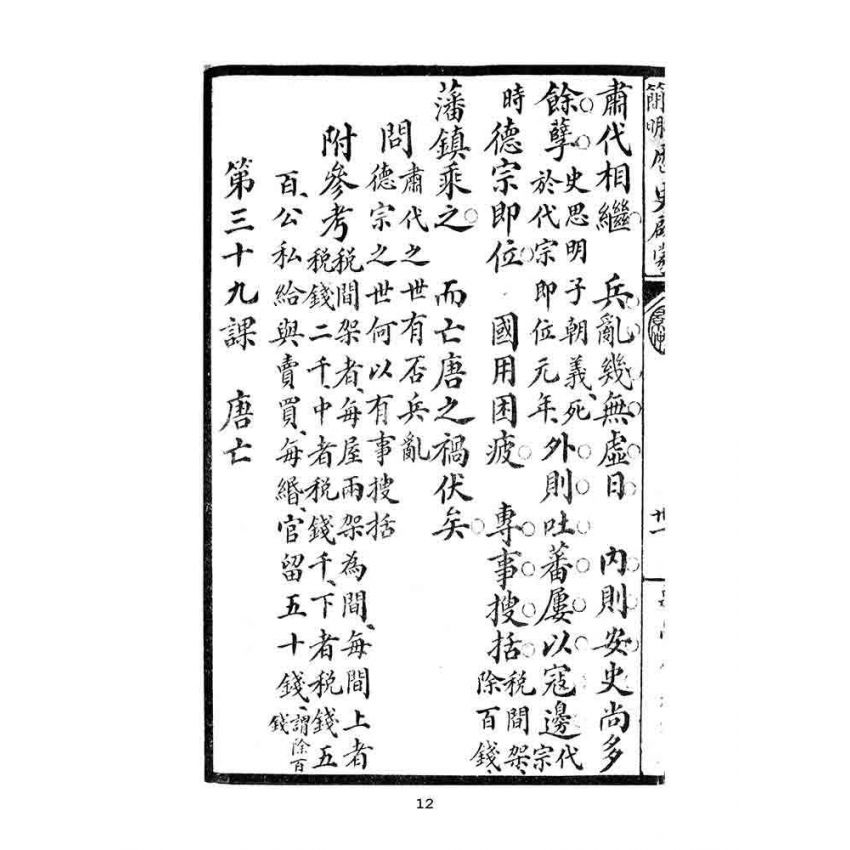 簡明歷史啟蒙
肅代相繼 兵亂幾無虛日 內則安史尚多
餘孽 史思明子朝義、死
於代宗即位元年、 外則吐蕃屢以寇邊 代
宗
時 德宗即位 國用困疲 專事搜括 税間架、
除百錢、
藩鎮乘之 而亡唐之禍伏矣
問 肅代之世有否兵亂
德宗之世何以有事搜括
附參考 税間架者、每屋兩架為間、每間上者
税錢二千、中者税錢千、下者税錢五
百、公私給與賣買、每緡、官留五十錢、 謂除百
錢
第三十九課 唐亡
12